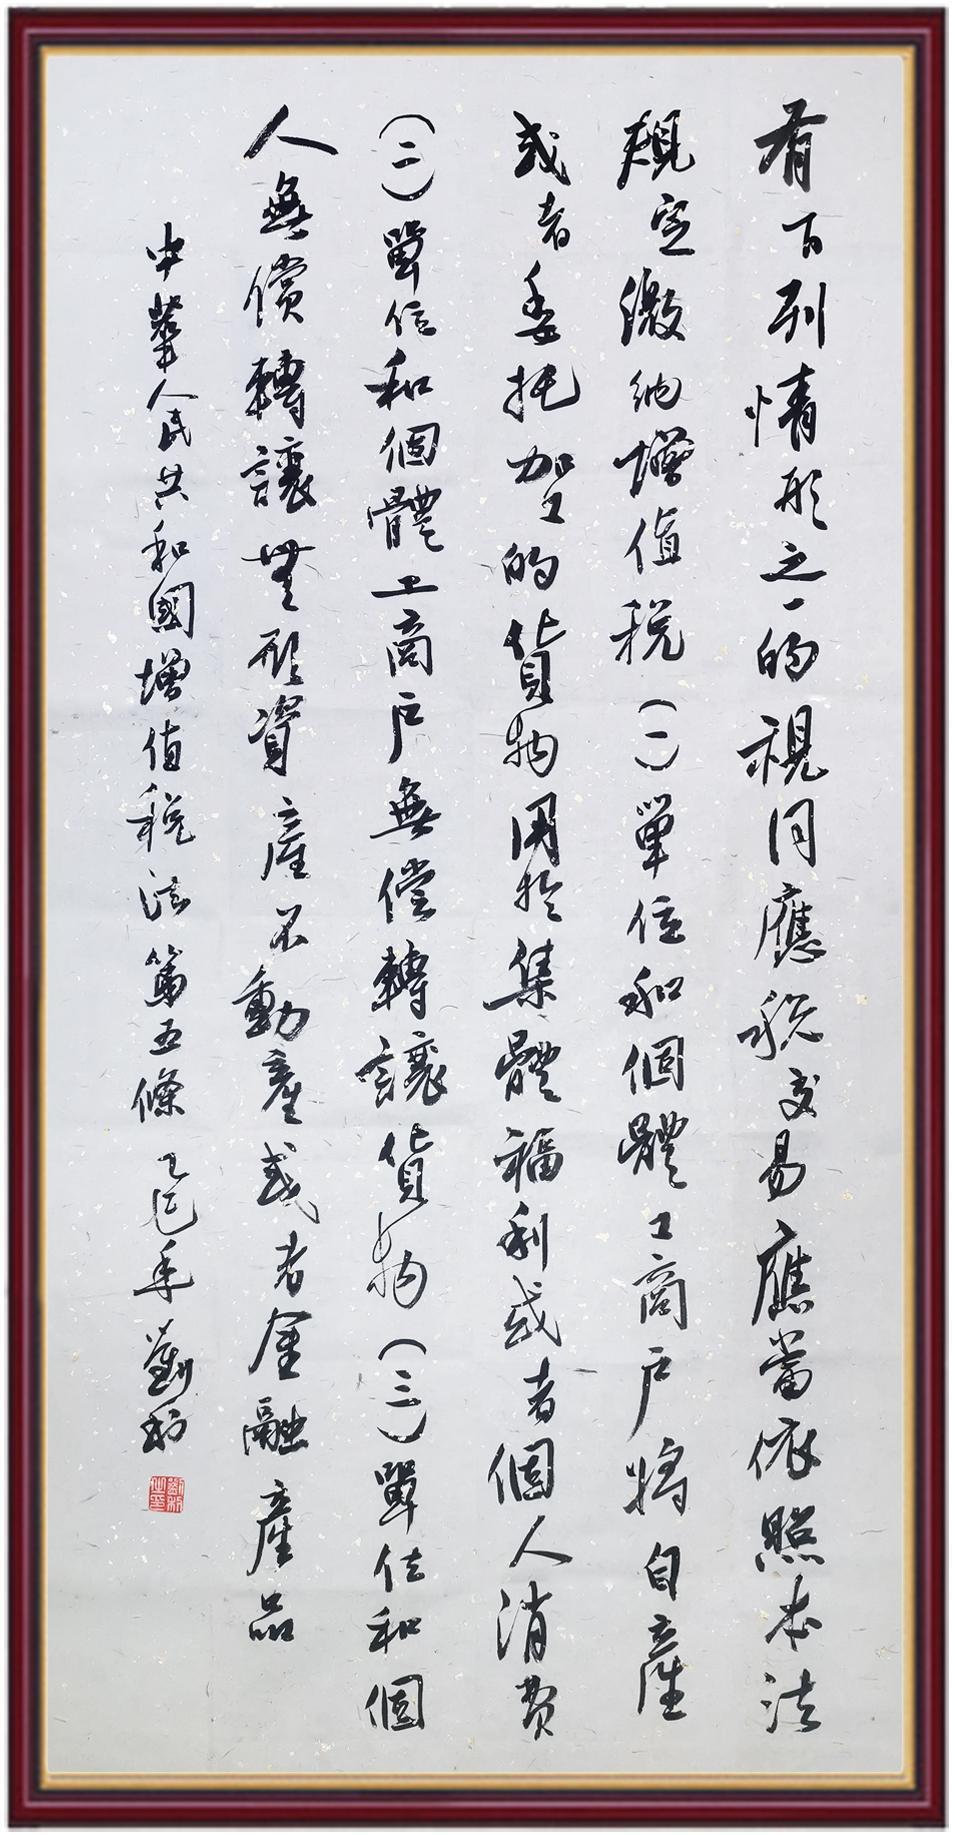 有下列情形之一的視同應稅交易應當依照本法
規定繳納增值稅（一）單位和個體工商戶將自產
或者委托加工的貨物用於集體福利或者個人消費
（二）單位和個體工商戶無償轉讓貨物（三）單位和個
人無償轉讓無形資產不動產或者金融產品
中華人民共和國增值稅法第五條乙巳年劉